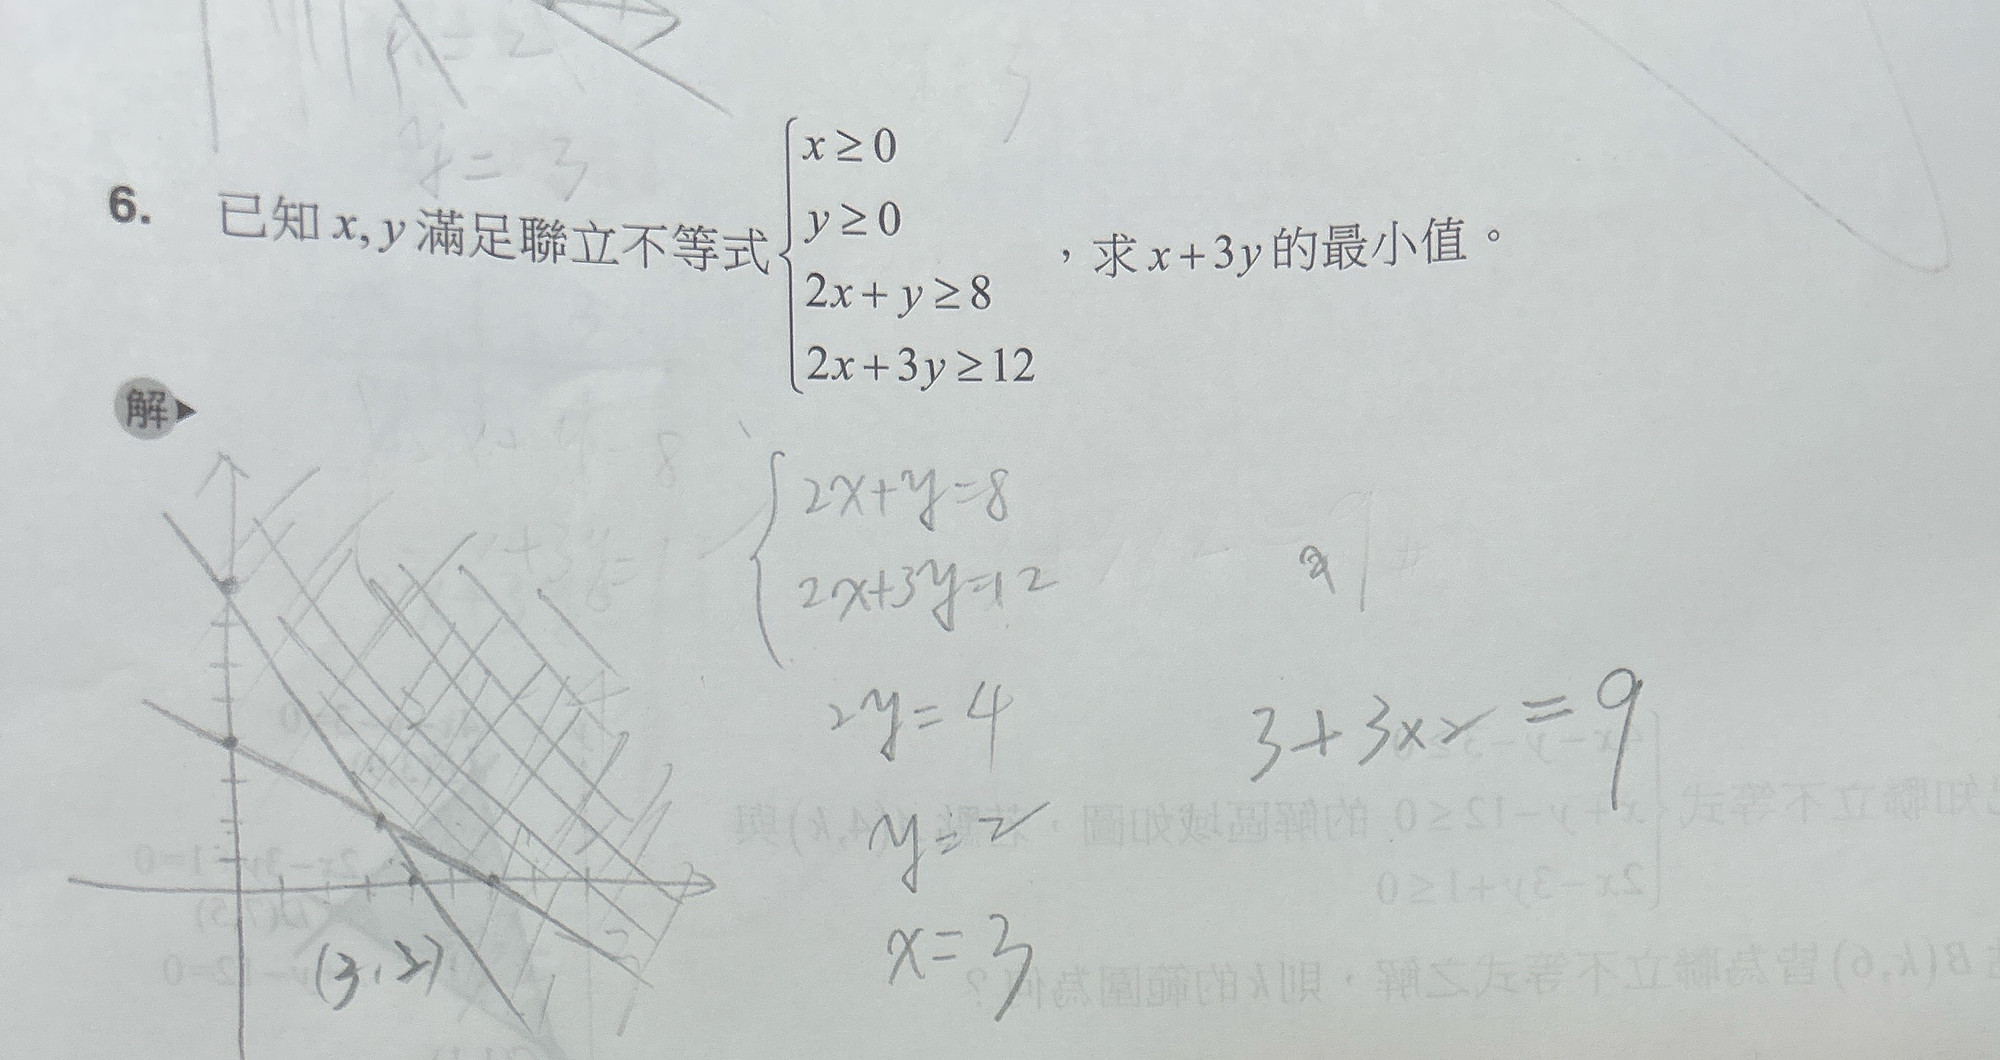 x = 2
y = 3
6. 已知 x, y 滿足聯立不等式 { x ≥ 0
y ≥ 0
2x + y ≥ 8
2x + 3y ≥ 12 ，求 x + 3y 的最小值。
解▶
2x+y=8
2x+3y=12
2y = 4
y = 2
x = 3
(3, 2)
3+3x2 = 9